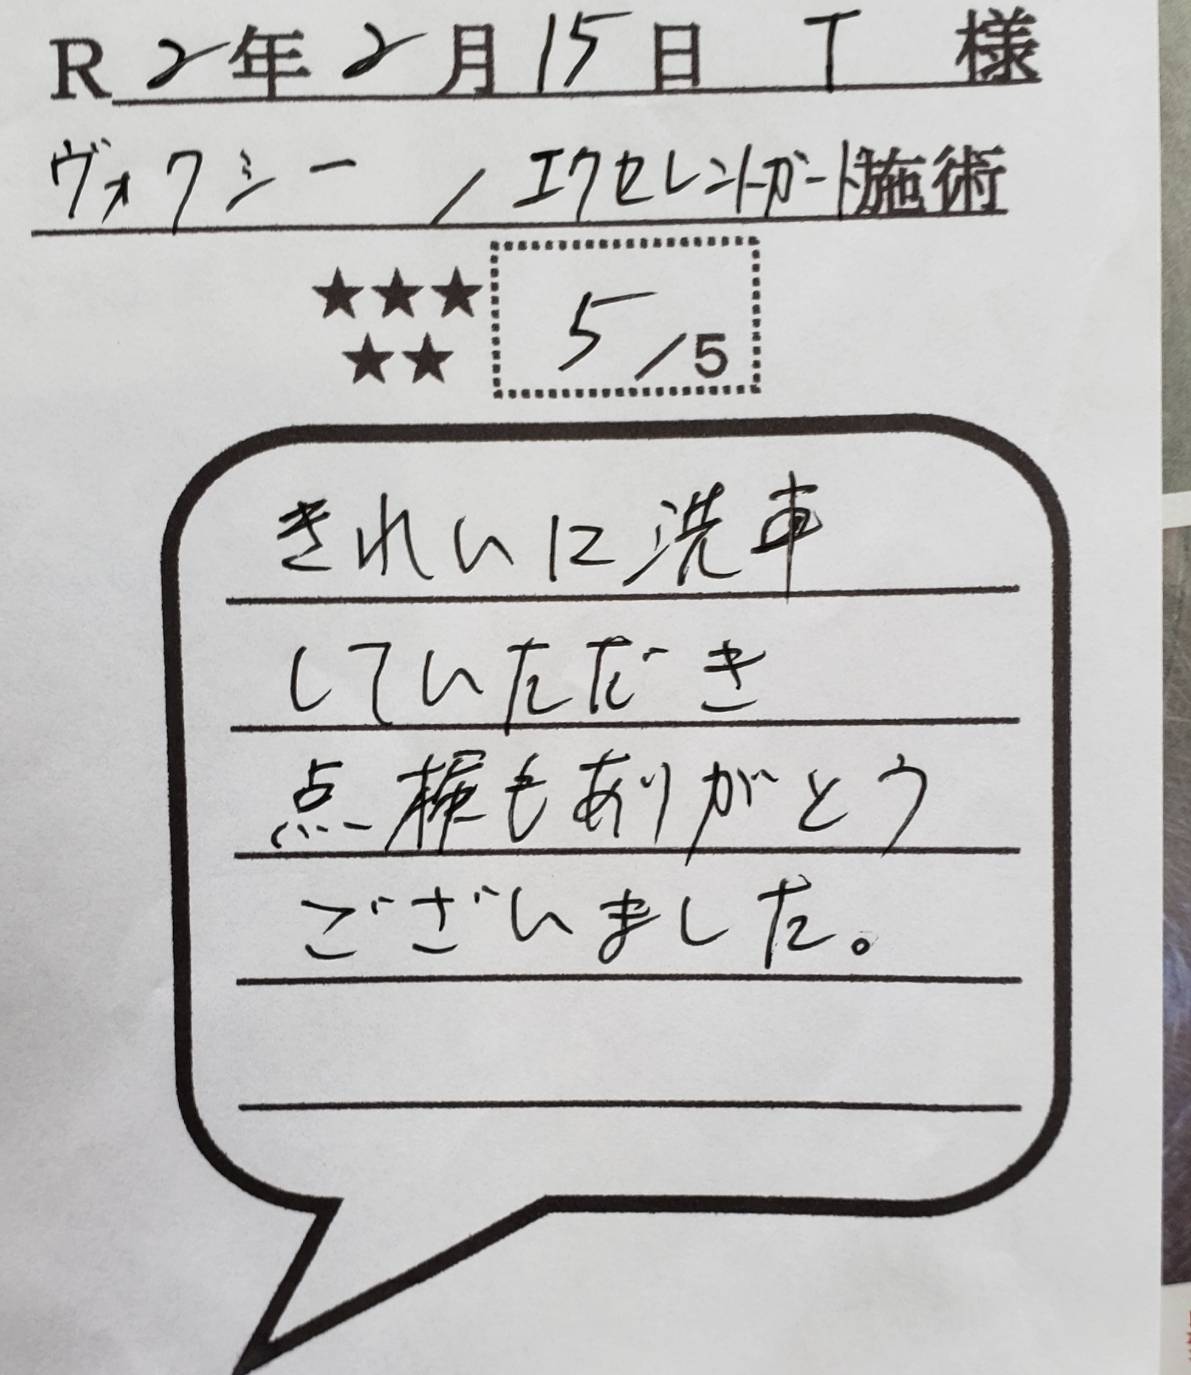 R2年2月15日 T 様
ヴォクシー / エクセレントガード施術
★★★
★★
5/5
きれいに洗車
していただき
点検もありがとう
ございました。